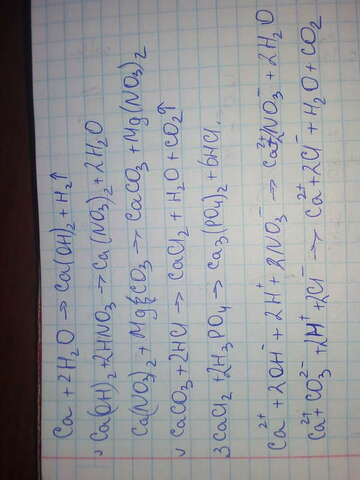 Ca + 2H₂O → Ca(OH)₂ + H₂↑
Ca(OH)₂ + 2HNO₃ → Ca(NO₃)₂ + 2H₂O
Ca(NO₃)₂ + MgCO₃ → CaCO₃ + Mg(NO₃)₂
CaCO₃ + 2HCl → CaCl₂ + H₂O + CO₂↑
3CaCl₂ + 2H₃PO₄ → Ca₃(PO₄)₂ + 6HCl.
Ca²⁺ + 2OH⁻ + 2H⁺ + 2NO₃⁻ → Ca²⁺ + 2NO₃⁻ + 2H₂O
Ca²⁺ + CO₃²⁻ + 2H⁺ + 2Cl⁻ → Ca²⁺ + 2Cl⁻ + H₂O + CO₂